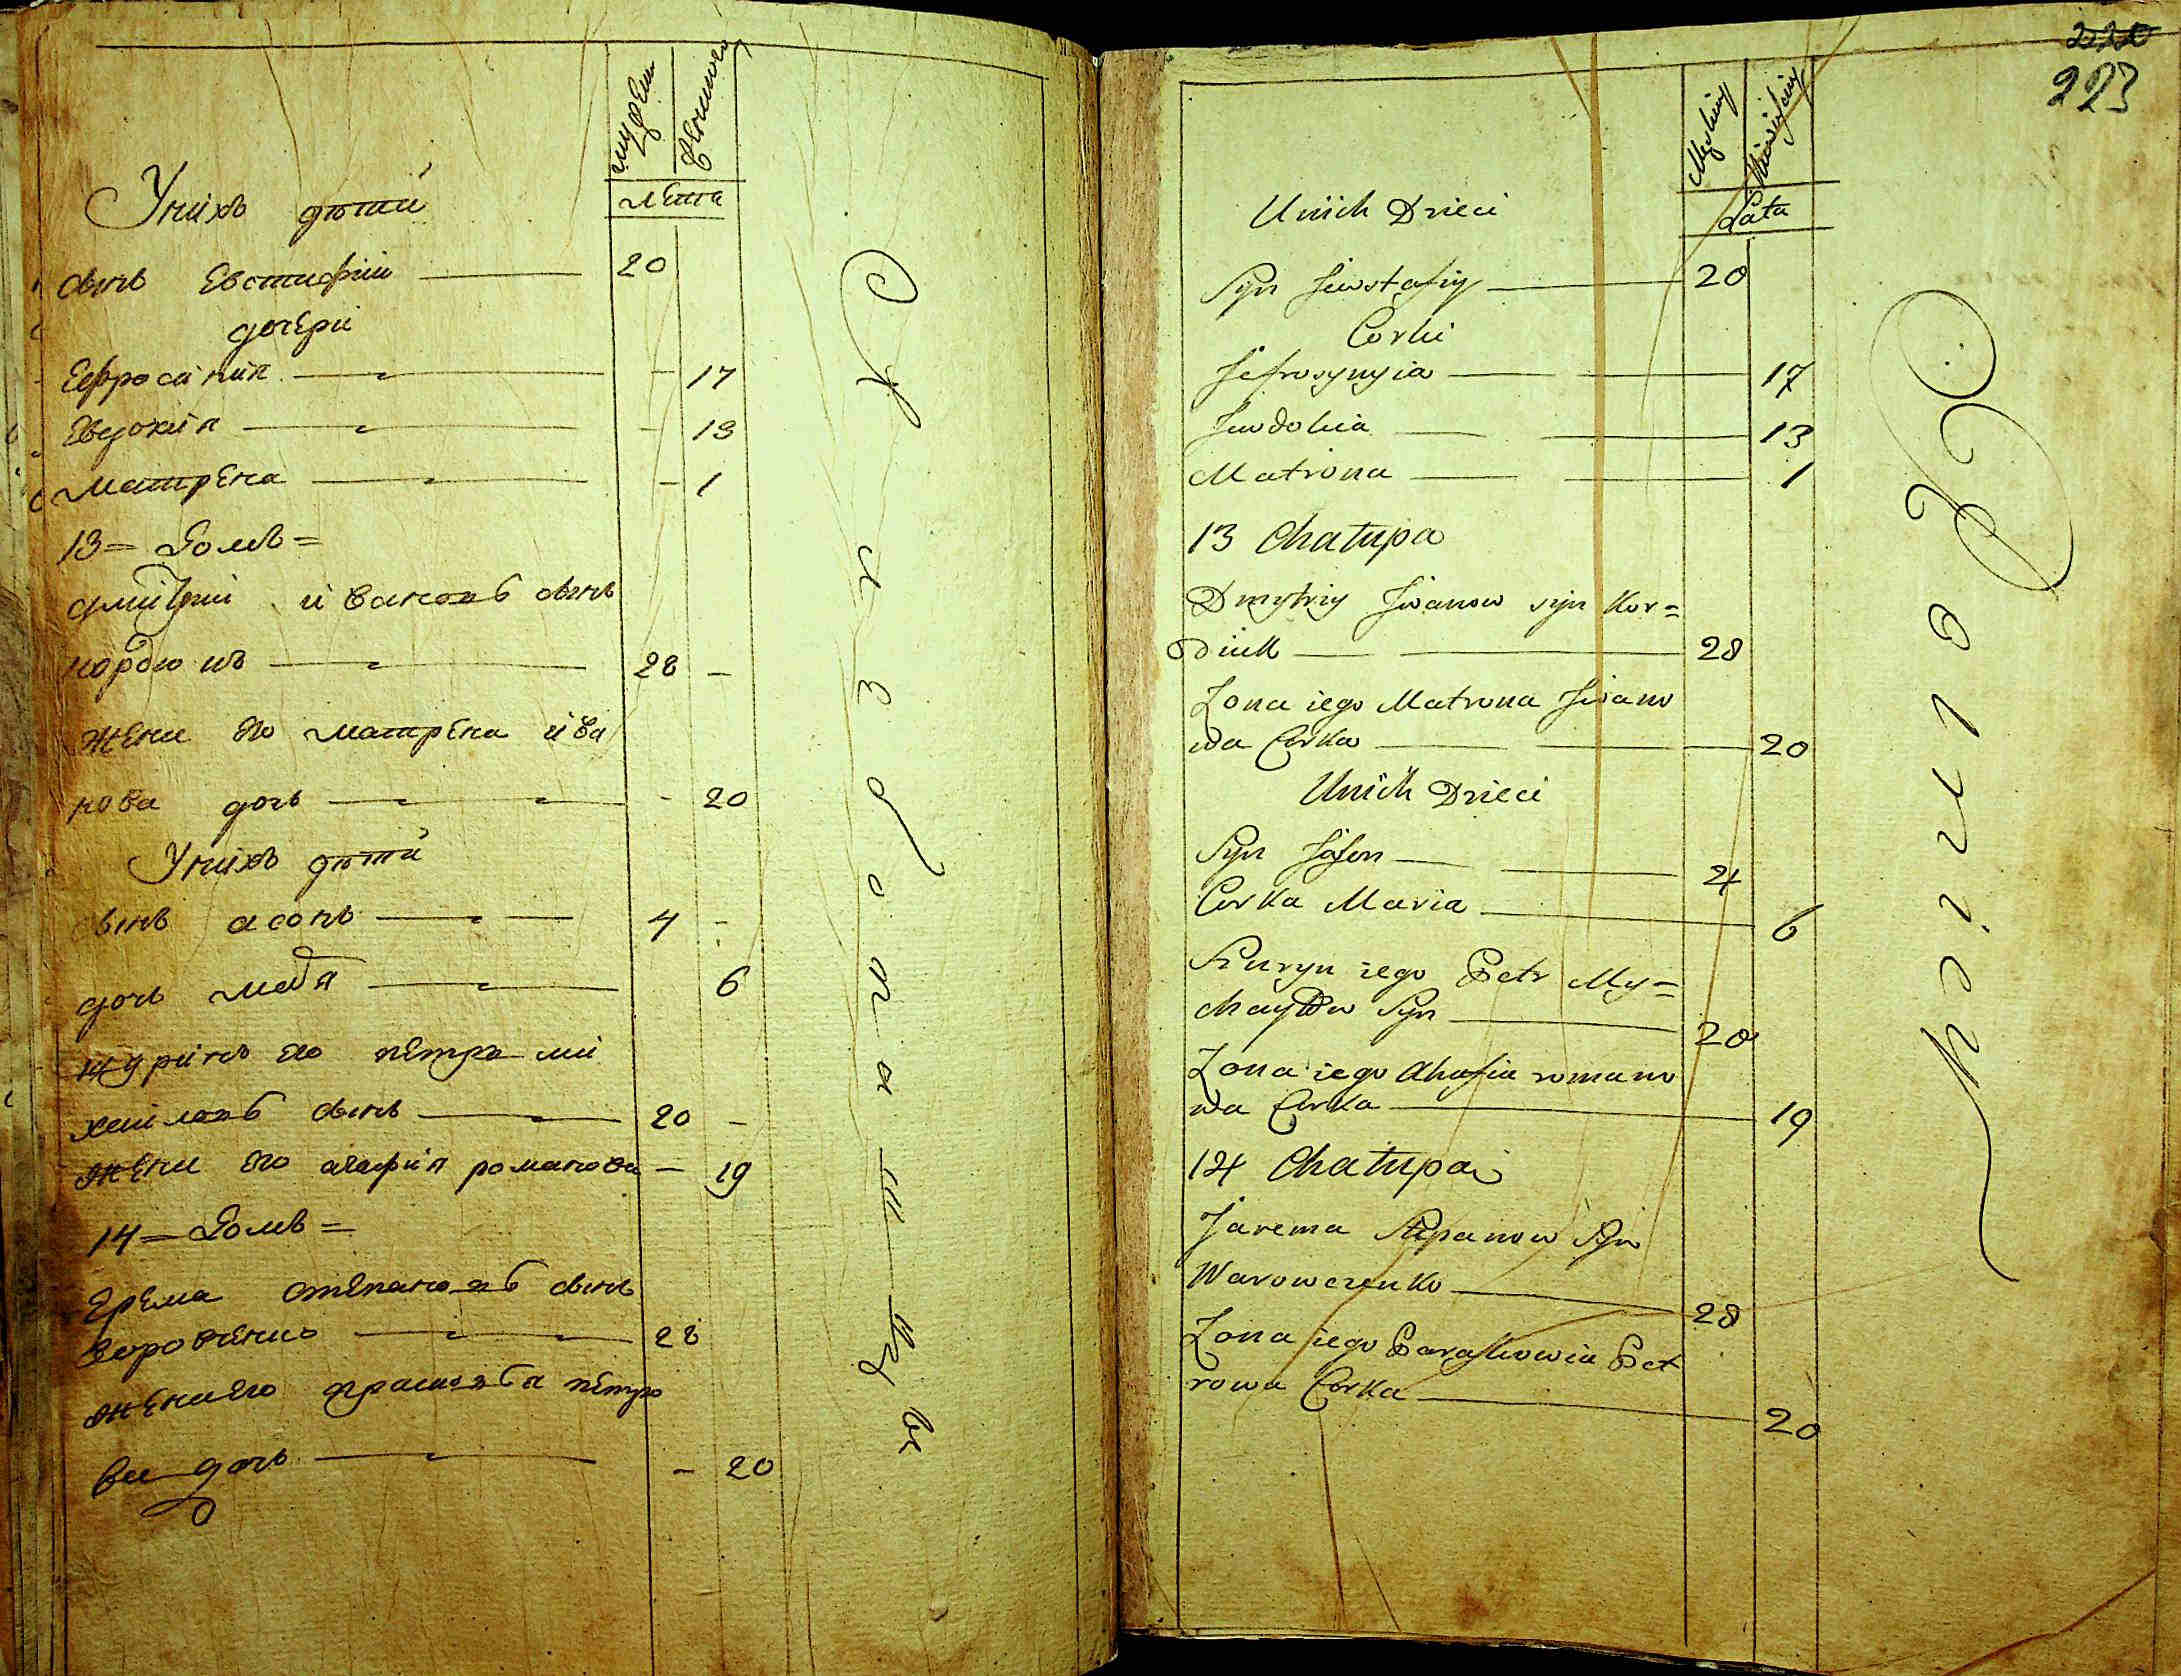 мужеш
женшого
лета
Унихъ дѣтй
сынъ Евстифий 20
дочерй
Ефросиния 17
Евдокия 13
матрена 1
13 = домъ =
дмитрий ивановъ сынъ
кордюкъ 28
жена его матрена ива
нова дочь 20
Унихъ дѣтй
сынъ асонъ 4
дочь мария 6
шуринъ его петръ ми
хайловъ сынъ 20
жена его агафия романова 19
14 = домъ =
Ерема степановъ сынъ
воровченко 28
жена его прасковья петро
ва дочь 20
220
223
Męsczyny
Lata
Unich Dzieci
Syn Jewstafiy 20
Corki
Jefrosynyia 17
Jewdokia 13
Matrona 1
13 Chatupa
Dmytriy Jwanow syn Kor=
diuk 28
Zona iego Matrona Jwano
wa Corka 20
Unich Dzieci
Syn Jason 4
Corka Maria 6
Szuryn iego Petr My=
chayłow Syn 20
Zona iego Ahafia romano
wa Corka 19
14 Chatupa
Jarema Stepanow Syn
Worowczenko 28
Zona iego Paraskowia Pet
rowa Corka 20